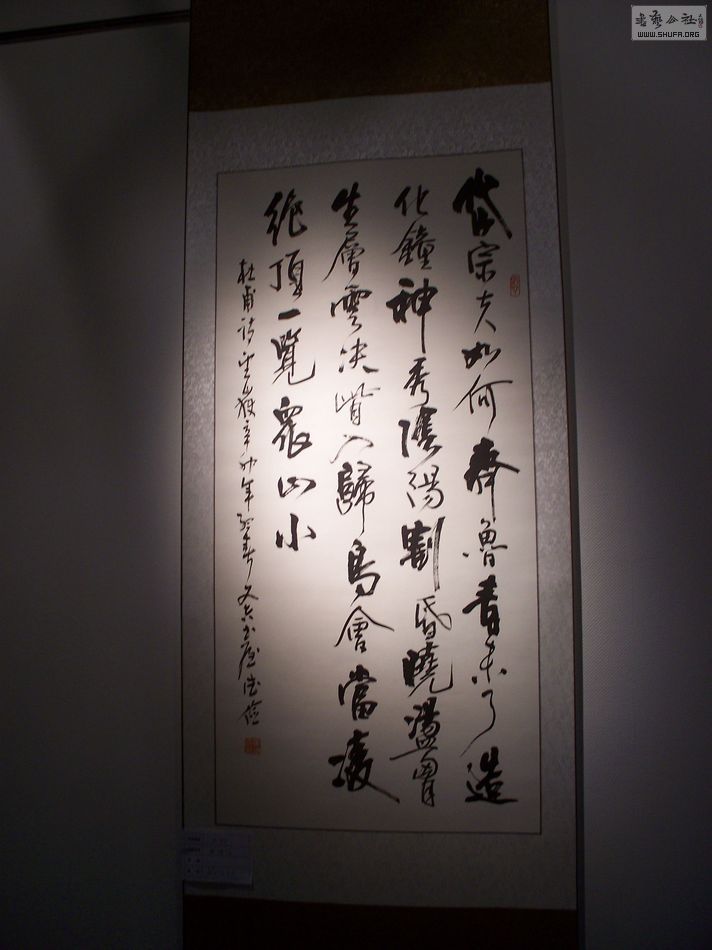 岱宗夫如何齊魯青未了造
化鐘神秀陰陽割昏曉盪胷
生層雲決眥入歸鳥會當凌
絶頂一覽衆山小
杜甫詩望嶽辛卯年
書藝公社
WWW.SHUFA.ORG